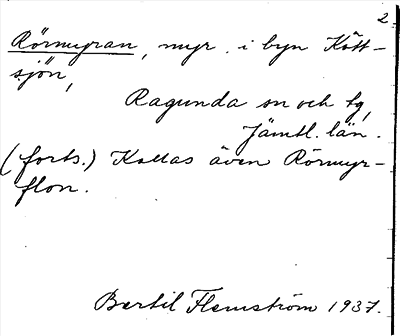 2.
Rörmyran, myr i byn Kött-
sjön,
Ragunda sn och tg,
Jämtl. län.
(forts.) Kallas även Rörmyr-
flon.
Bertil Flemström 1937.